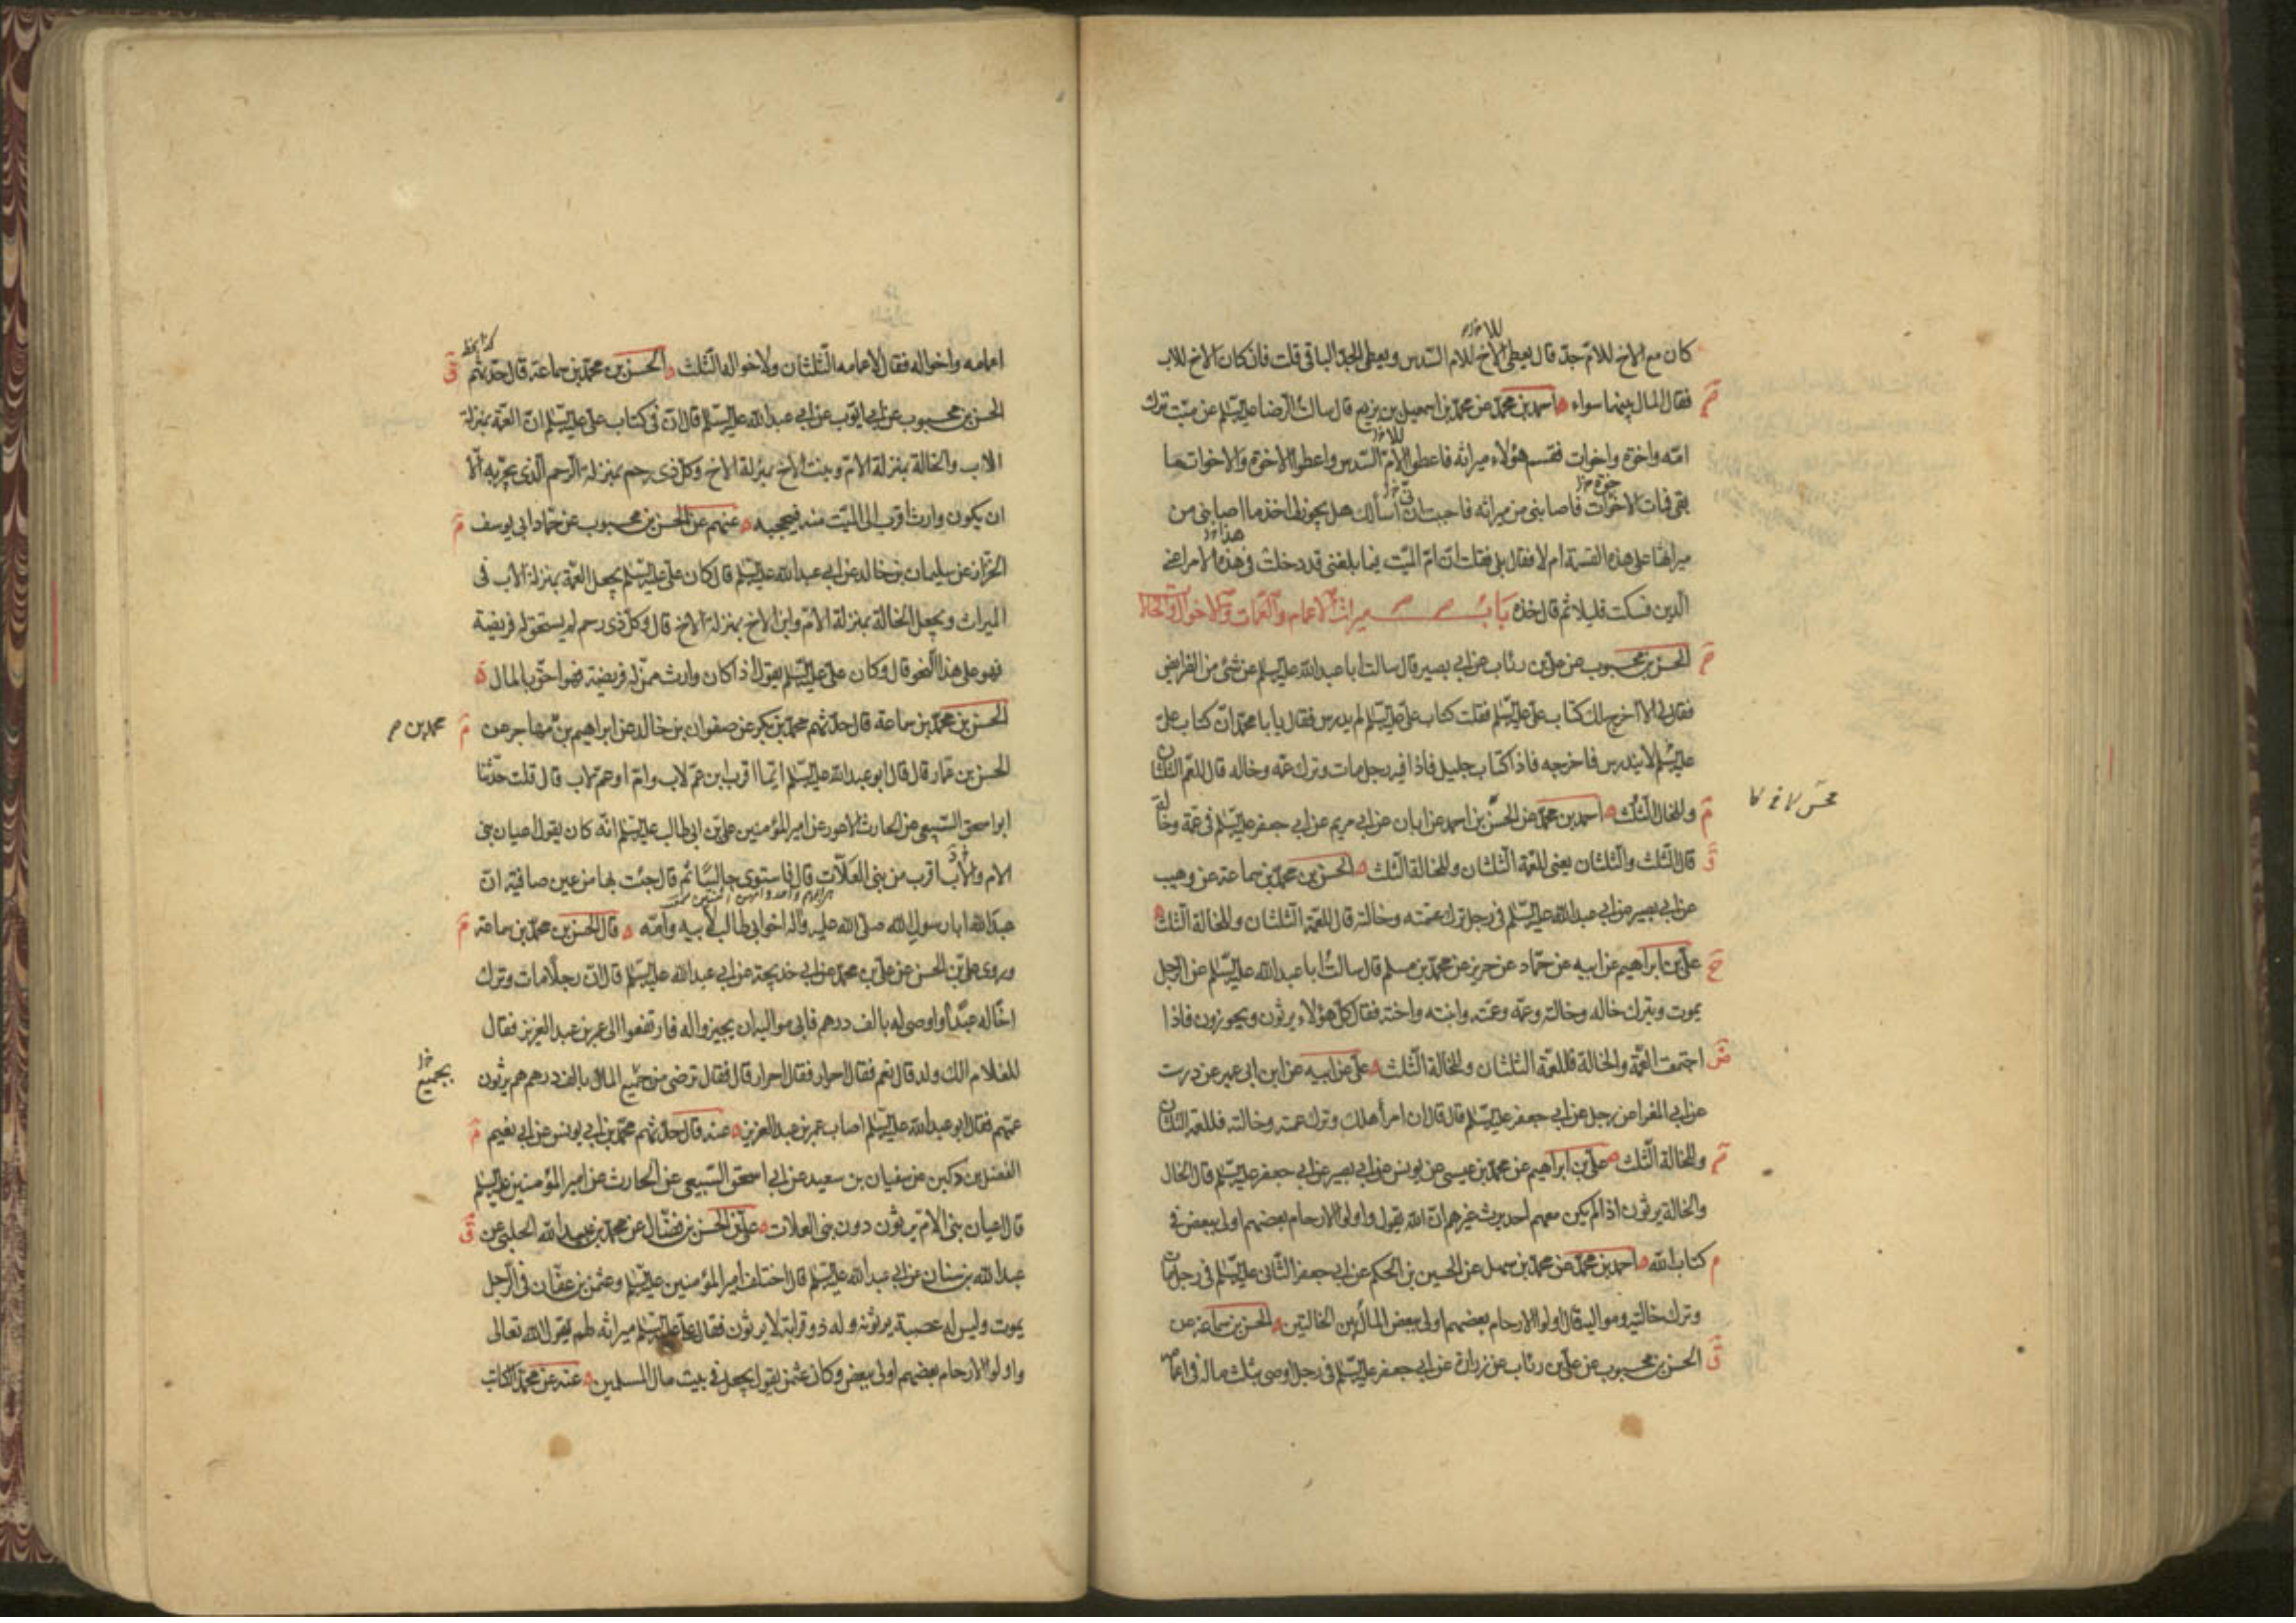 كان مع الاخ للام جد قال يعطى الاخ للام السدس ويعطى الجد الباقى قلت فان كان الاخ للاب
فقال المال بينهما سواء احمد بن محمد عن محمد بن اسمعيل بن بزيع قال سالت الرضا عليه السلم عن ميت ترك
امه واخوة واخوات فقسم هؤلاء ميراثه فاعطوا الام السدس واعطوا الاخوة والاخوات ما
بقى فمات الاخوات فاصابنى من ميراثه فاحببت ان أسألك هل يجوز لى اخذ ما اصابنى من
ميراثها على هذه القسمة ام لا فقال بلى فقلت ان ام الميت فيما بلغنى قد دخلت فى هذا الامر اعنى
الدين فسكت قليلا ثم قال خذه باب ميراث الاعمام والعمات والاخوال والخالا
الحسن بن محبوب عن على بن رئاب عن ابى بصير قال سالت ابا عبد الله عليه السلم عن شئ من الفرايض
فقال لى الا اخرج لك كتاب على عليه السلم فقلت كتاب على عليه السلم لم يدرس فقال يا با محمد ان كتاب على
عليه السلم لا يندرس فاخرجه فاذا كتاب جليل فاذا فيه رجل مات وترك عمه وخاله قال للعم الثلثان
وللخال الثلث احمد بن محمد عن الحسن بن احمد عن ابان عن ابى مريم عن ابى جعفر عليه السلم فى عمة وخالة
قال الثلث والثلثان يعنى للعمة الثلثان وللخالة الثلث الحسن بن محمد بن سماعة عن وهيب
عن ابى بصير عن ابى عبد الله عليه السلم فى رجل ترك عمته وخالته قال للعمة الثلثان وللخالة الثلث
على بن ابراهيم عن ابيه عن حماد عن حريز عن محمد بن مسلم قال سالت ابا عبد الله عليه السلم عن الرجل
يموت ويترك خاله وخالته وعمه وعمته وابنته واخته فقال كل هؤلاء يرثون ويحوزون فاذا
اجتمعت العمة والخالة فللعمة الثلثان وللخالة الثلث على عن ابيه عن ابن ابى عمير عن درست
عن ابى المغرا عن رجل عن ابى جعفر عليه السلم قال قال ان امرأ هلك وترك عمته وخالته فللعمة الثلثان
وللخالة الثلث على بن ابراهيم عن محمد بن عيسى عن يونس عن ابى بصير عن ابى جعفر عليه السلم قال الخال
والخالة يرثون اذا لم يكن معهم احد يرث غيرهم ان الله يقول واولوا الارحام بعضهم اولى ببعض فى
كتاب الله احمد بن محمد عن محمد بن سهل عن الحسين بن الحكم عن ابى جعفر الثانى عليه السلم فى رجل مات
وترك خالتيه ومواليه قال اولوا الارحام بعضهم اولى ببعض المال بين الخالتين الحسن بن سماعة عن
الحسن بن محبوب عن على بن رئاب عن زرارة عن ابى جعفر عليه السلم فى رجل اوصى بثلث ماله فى اعمامه
اعمامه واخواله فقال لاعمامه الثلثان ولاخواله الثلث الحسن بن محمد بن سماعة قال حدثهم
الحسن بن محبوب عن ابى ايوب عن ابى عبد الله عليه السلم قال ان فى كتاب على عليه السلم ان العمة بمنزلة
الاب والخالة بمنزلة الام وبنت الاخ بمنزلة الاخ وكل ذى رحم بمنزلة الرحم الذى يجر به الا
ان يكون وارث اقرب الى الميت منه فيحجبه عنهم عن الحسن بن محبوب عن حماد ابى يوسف
الخزاز عن سليمان بن خالد عن ابى عبد الله عليه السلم قال كان على عليه السلم يجعل العمة بمنزلة الاب فى
الميراث ويجعل الخالة بمنزلة الام وابن الاخ بمنزلة الاخ قال وكل ذى رحم لم يستحق له فريضة
فهو على هذا النحو قال وكان على عليه السلم يقول اذا كان وارث ممن له فريضة فهو احق بالمال
الحسن بن محمد بن سماعة قال حدثهم محمد بن بكر عن صفوان بن خالد عن ابراهيم بن مهاجر عن
محمد بن
الحسن بن عمار قال قال ابو عبد الله عليه السلم ايما اقرب ابن عم لاب وام او عم لاب قال قلت حدثنا
ابو اسحق السبيعى عن الحارث الاعور عن امير المؤمنين على بن ابى طالب عليه السلم انه كان يقول اعيان بنى
الام والاب اقرب من بنى العلات قال فاستوى جالسا ثم قال جئت بها من عين صافية ان
عبد الله ابا رسول الله صلى الله عليه واله اخو ابى طالب لابيه وامه قال الحسن بن محمد بن سماعة
وروى على بن الحسن عن على بن محمد عن ابى خديجة عن ابى عبد الله عليه السلم قال ان رجلا مات وترك
اخا له عبدا واوصى له بالف درهم فابى مواليه ان يجيزوا له فارتفعوا الى عمر بن عبد العزيز فقال
للغلام الك ولد قال نعم فقال احرار فقال احرار قال فقال ترضى من جميع المال بالف درهم هم يرثون
بجميع
عمهم فقال ابو عبد الله عليه السلم اصاب عمر بن عبد العزيز عنه قال حدثهم محمد بن ابى يونس عن ابى نعيم
الفضل بن دكين عن سفيان بن سعيد عن ابى اسحق السبيعى عن الحارث عن امير المؤمنين عليه السلم
قال اعيان بنى الام يرثون دون بنى العلات على بن الحسن بن فضال عن محمد بن عبيد الله الحلبى عن
عبد الله بن سنان عن ابى عبد الله عليه السلم قال اختلف امير المؤمنين عليه السلم وعثمن بن عفان فى الرجل
يموت وليس له عصبة يرثونه وله ذو قرابة لا يرثون فقال على عليه السلم ميراثه لهم يقول الله تعالى
واولوا الارحام بعضهم اولى ببعض وكان عثمن يقول يجعل فى بيت مال المسلمين عنه عن محمد الكاتب